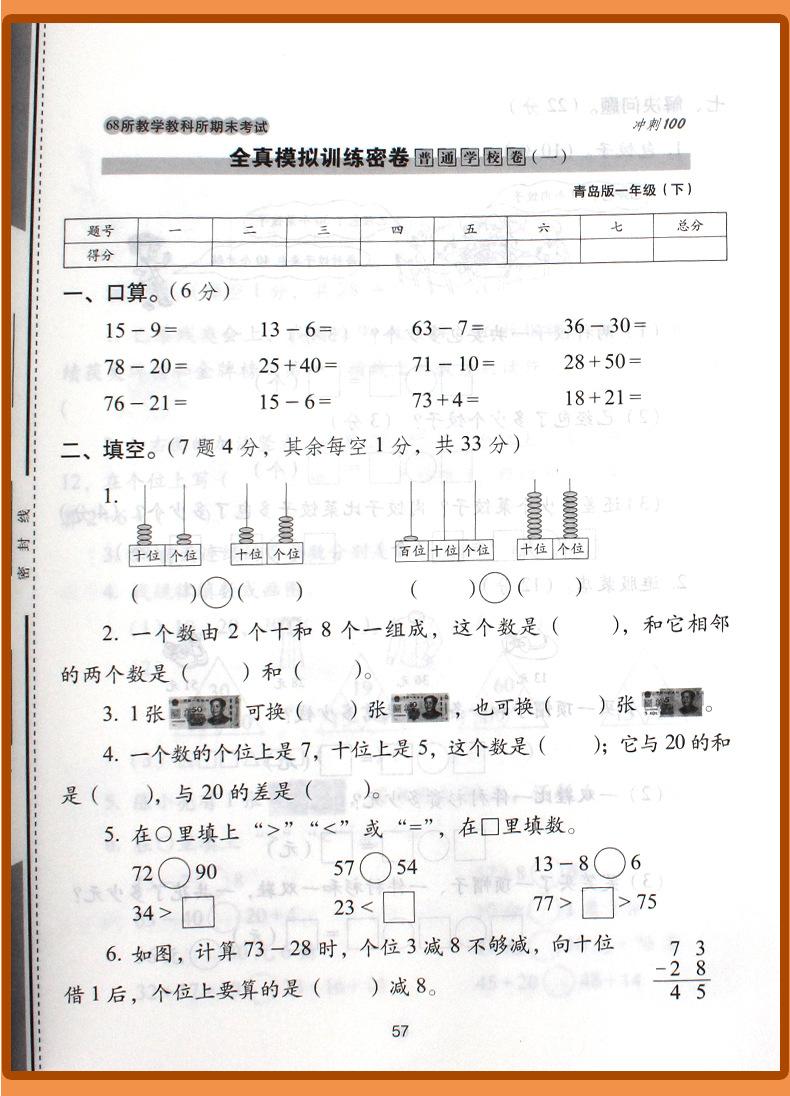 68所教学教科所期末考试
冲刺100
全真模拟训练密卷 普通学校卷(一)
青岛版一年级(下)
题号 一 二 三 四 五 六 七 总分
得分
一、口算。(6分)
15-9= 13-6= 63-7= 36-30=
78-20= 25+40= 71-10= 28+50=
76-21= 15-6= 73+4= 18+21=
二、填空。(7题4分，其余每空1分，共33分)
1.
十位 个位 十位 个位 百位 十位 个位 十位 个位
( )○( ) ( )○( )
2. 一个数由2个十和8个一组成，这个数是( )，和它相邻
的两个数是( )和( )。
3. 1张 可换( )张 ，也可换( )张 。
4. 一个数的个位上是7，十位上是5，这个数是( )；它与20的和
是( )，与20的差是( )。
5. 在○里填上“>”“<”或“=”，在□里填数。
72○90 57○54 13-8○6
34>□ 23<□ 77>□>75
6. 如图，计算73-28时，个位3减8不够减，向十位
借1后，个位上要算的是( )减8。
7 3
-2 8
4 5
57
密封线